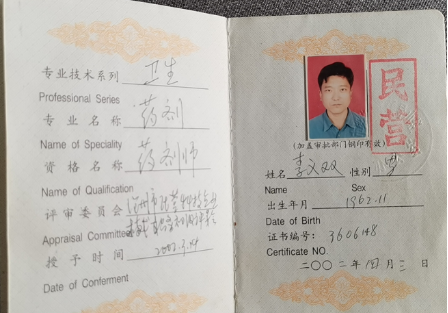 专业技术系列 卫生
Professional Series
专业名称 药剂
Name of Speciality
资格名称 药剂师
Name of Qualification
评审委员会
Appraisal Committee
授予时间 2002.3.4
Date of Conferment
民营
(加盖审批部门钢印有效)
姓名 李文 性别
Name Sex
出生年月 1962.11
Date of Birth
证书编号: 3606148
Certificate NO.
二〇〇二年四月三日